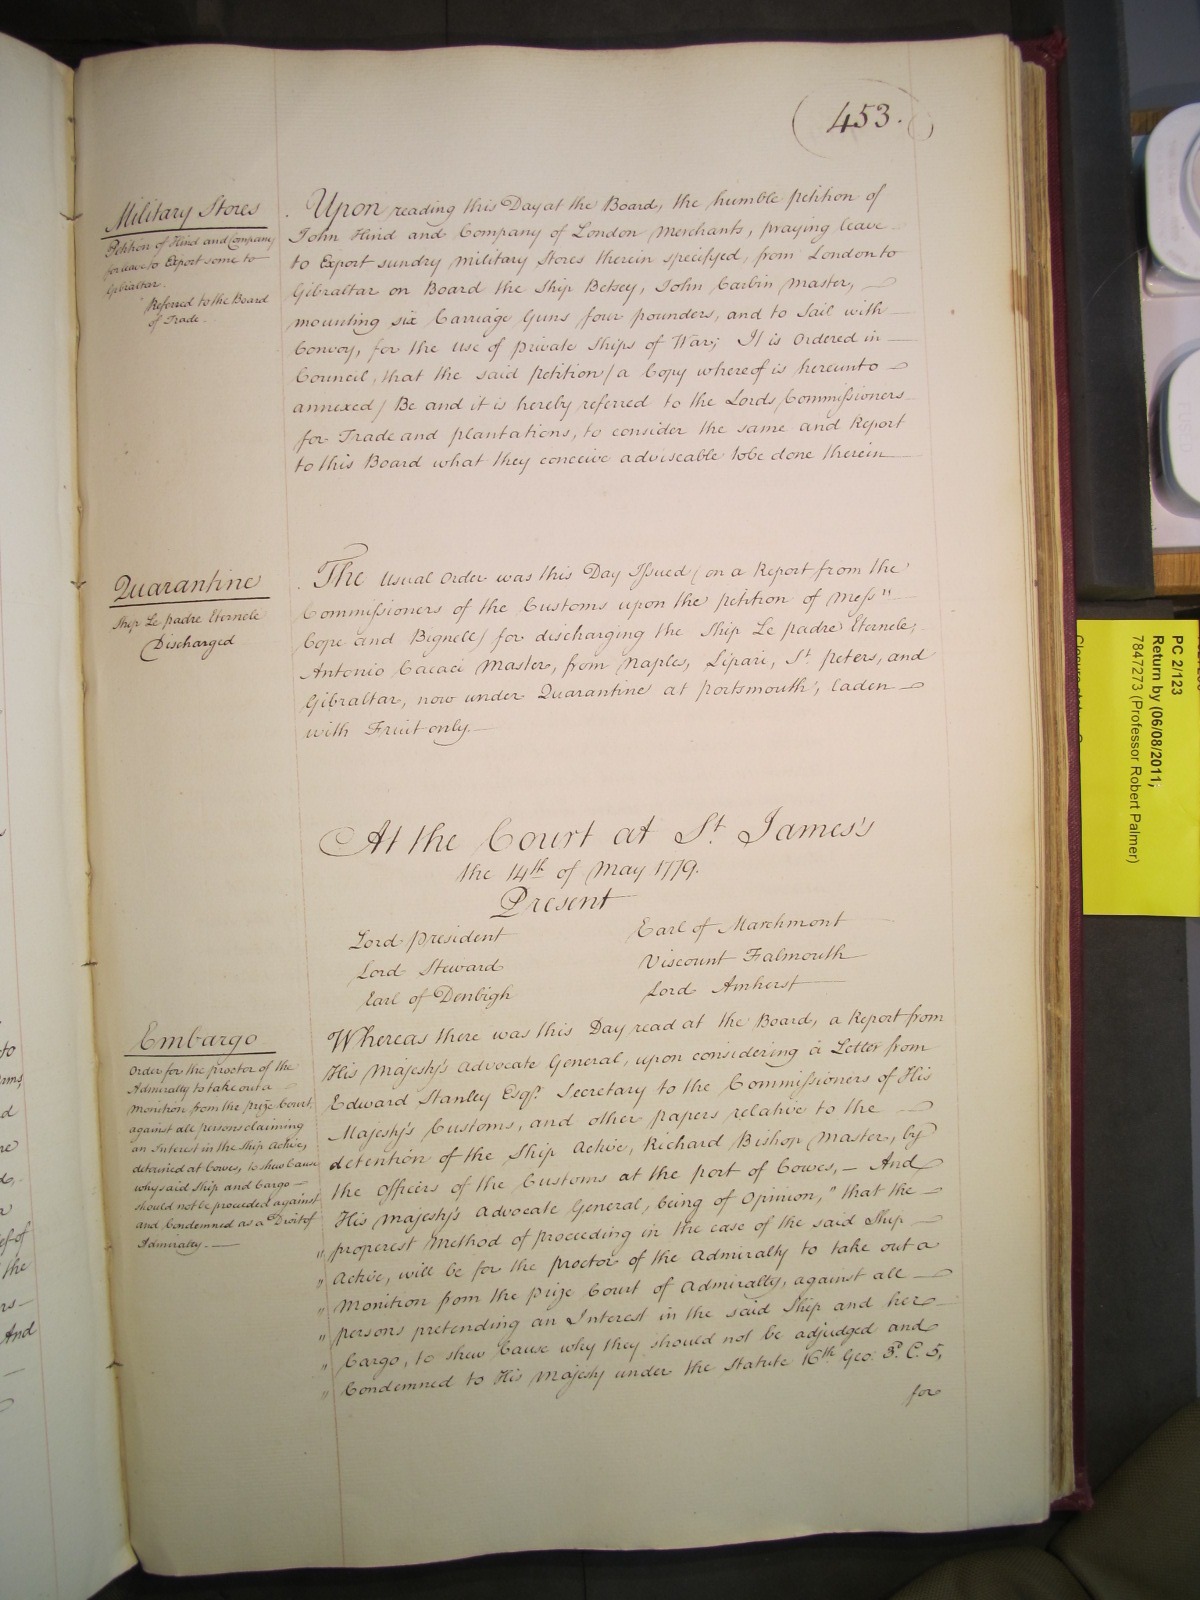 453.
Military Stores
Petition of Hind and Company
for leave to Export some to
Gibraltar.
Referred to the Board
of Trade.
Upon reading this Day at the Board, the humble petition of
John Hind and Company of London Merchants, praying leave
to Export sundry Military Stores therein specifyed, from London to
Gibraltar on Board the Ship Betsey, John Corbin Master,
mounting six Carriage Guns four pounders, and to Sail with
Convoy, for the use of private Ships of War; It is Ordered in
Council, that the said Petition / a Copy whereof is hereunto
annexed / Be and it is hereby referred to the Lords Commissioners
for Trade and plantations, to consider the same and Report
to this Board what they conceive adviseable to be done therein
Quarantine
Ship Le padre Eternele
Discharged
The Usual Order was this Day Issued / on a Report from the
Commissioners of the Customs upon the petition of Mess.rs
Cope and Bignell / for discharging the Ship Le padre Eternele,
Antonio Cacace Master, from Naples, Lipari, St. Peters, and
Gibraltar, now under Quarantine at Portsmouth, laden
with Fruit only.
At the Court at St. James's
the 14th of May 1779.
Present
Lord President
Lord Steward
Earl of Denbigh
Earl of Marchmont
Viscount Falmouth
Lord Amherst
Embargo
Order for the proctor of the
Admiralty to take out a
Monition from the Prize Court,
against all persons claiming
an Interest in the Ship Active,
detained at Cowes, to shew Cause
why said Ship and Cargo
should not be proceeded against
and Condemned as a Droit of
Admiralty.
Whereas there was this Day read at the Board, a Report from
His Majesty's Advocate General, upon considering a Letter from
Edward Stanley Esqr. Secretary to the Commissioners of His
Majesty's Customs, and other papers relative to the
detention of the Ship Active, Richard Bishop Master, by
the Officers of the Customs at the port of Cowes, — And
His Majesty's Advocate General, being of Opinion, "that the
" properest Method of proceeding in the case of the said Ship
" Active, will be for the Proctor of the Admiralty to take out a
" Monition from the Prize Court of Admiralty, against all
" persons pretending an Interest in the said Ship and her
" Cargo, to shew Cause why they should not be adjudged and
" Condemned to His Majesty under the Statute 16th Geo: 3. C. 5,
for
PC 2/123
Return by (06/08/2011;
7847273 (Professor Robert Palmer)
to
d
of
the
And